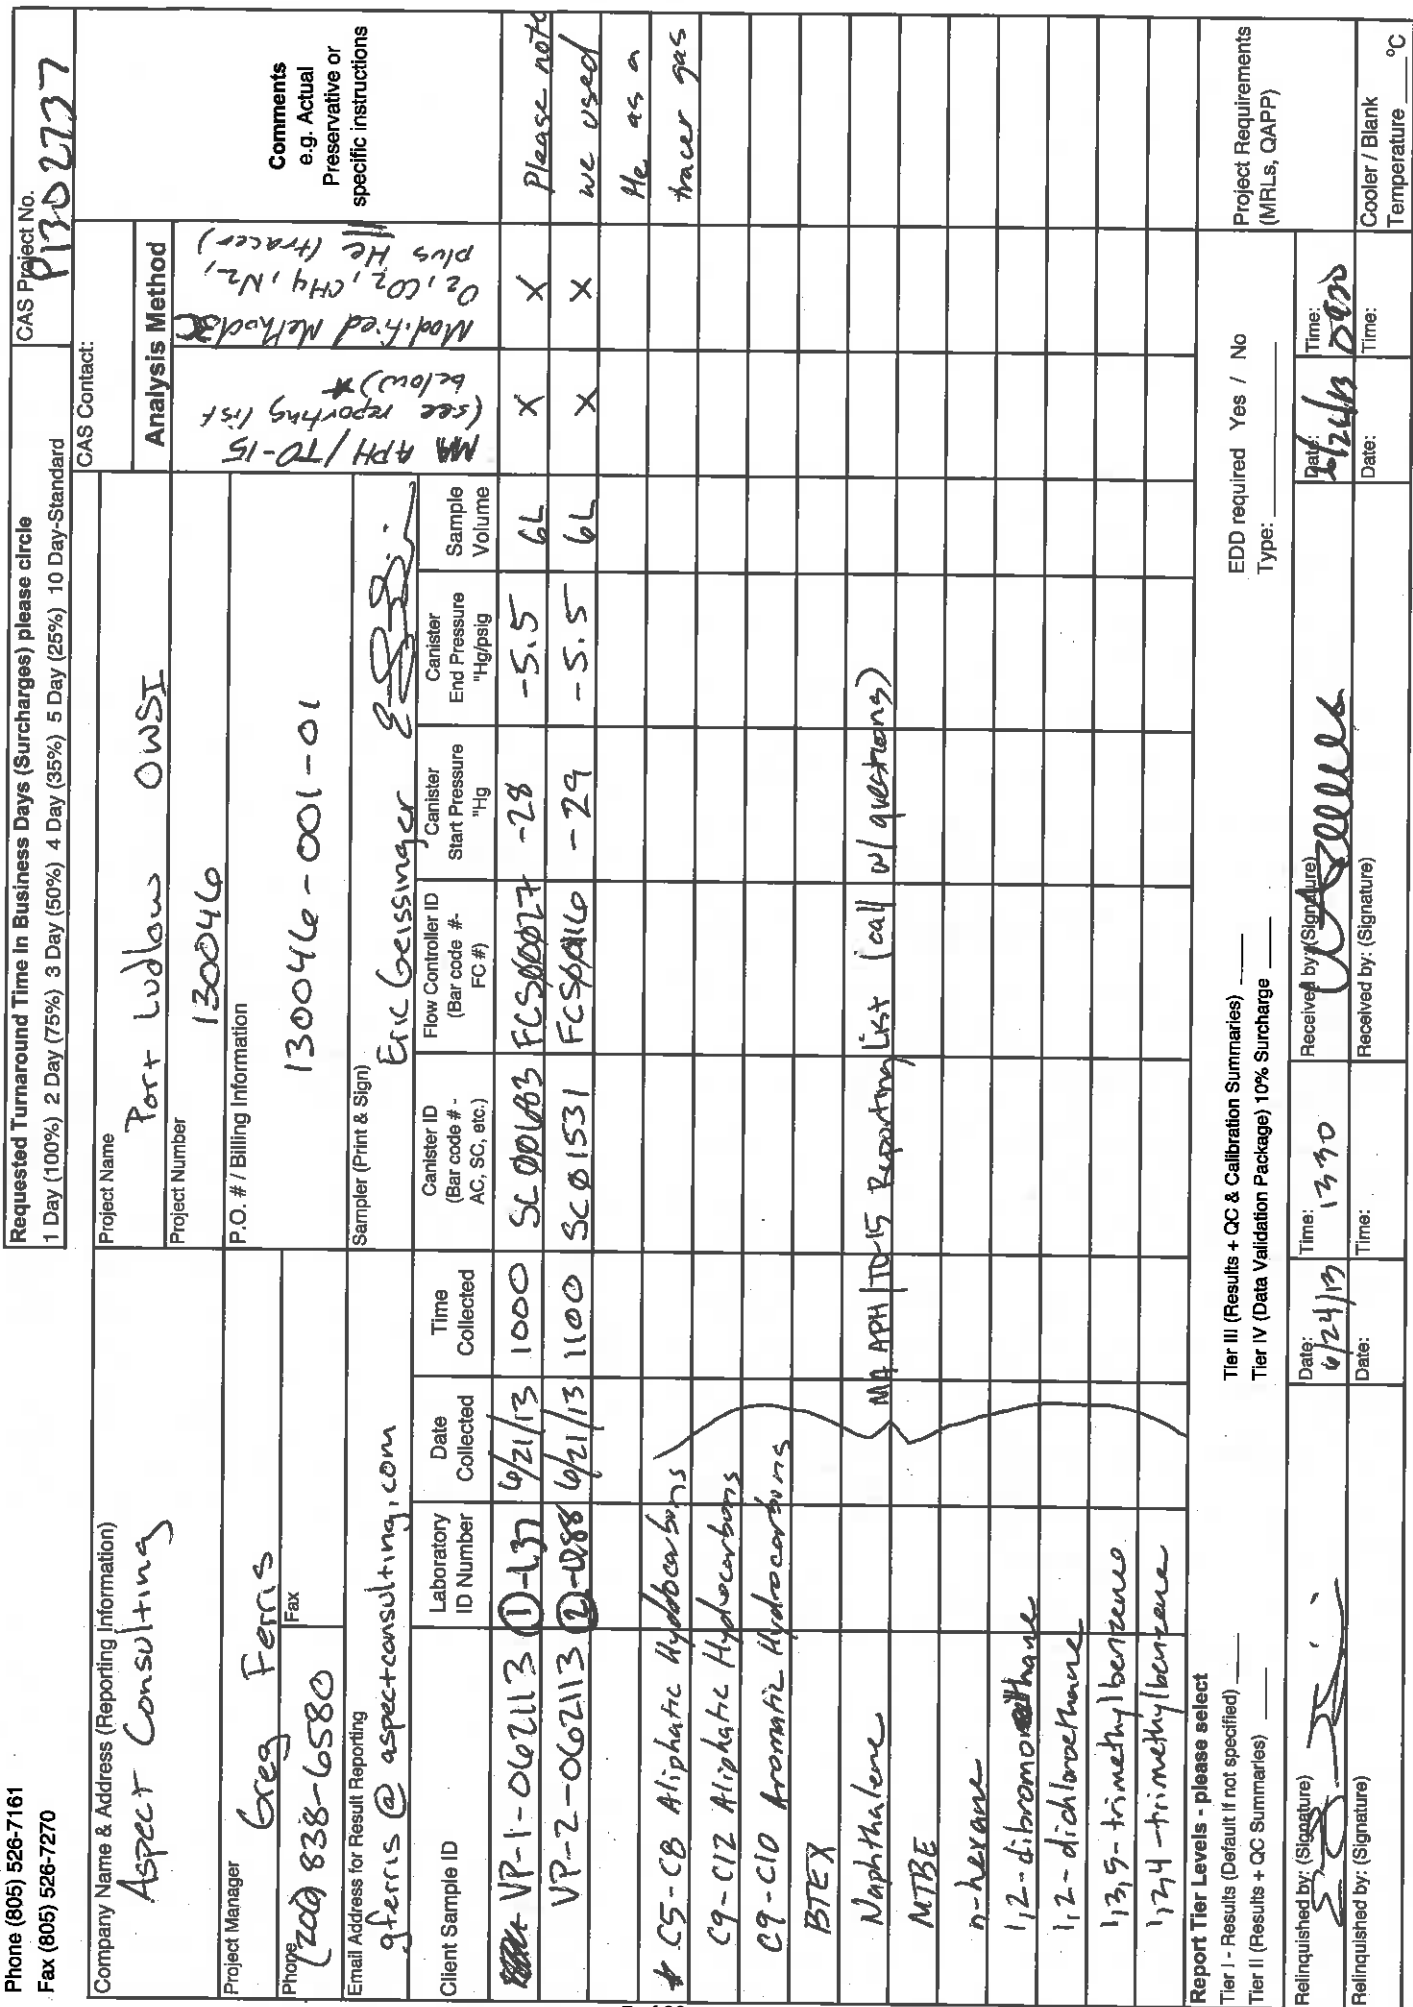 Phone (805) 526-7161
Fax (805) 526-7270
Requested Turnaround Time in Business Days (Surcharges) please circle
1 Day (100%) 2 Day (75%) 3 Day (50%) 4 Day (35%) 5 Day (25%) 10 Day-Standard
CAS Project No.
P1302737
Company Name & Address (Reporting Information)
Aspect Consulting
Project Name
Port Ludlow OWSI
CAS Contact:
Project Number
130046
Analysis Method
Project Manager
Greg Ferris
P.O. # / Billing Information
130046-001-01
Phone
(206) 838-6580
Fax
Email Address for Result Reporting
gferris@aspectconsulting.com
Sampler (Print & Sign)
Eric Geissinger
MA APH/TO-15
(see reporting list
below)*
Modified Method
O2, CO2, CH4, N2,
plus He (tracer)
Comments
e.g. Actual
Preservative or
specific instructions
Client Sample ID
Laboratory
ID Number
Date
Collected
Time
Collected
Canister ID
(Bar code # -
AC, SC, etc.)
Flow Controller ID
(Bar code #-
FC #)
Canister
Start Pressure
"Hg
Canister
End Pressure
"Hg/psig
Sample
Volume
VP-1-062113 1 6/21/13 1000 -28 -5.5 6L X X Please note
VP-2-062113 2 6/21/13 1100 SC01531 -29 -5.5 6L X X we used
He as a
* C5-C8 Aliphatic Hydrocarbons tracer gas
C9-C12 Aliphatic Hydrocarbons
C9-C10 Aromatic Hydrocarbons
BTEX
Naphthalene
MA APH/TO-15 Reporting List (call w/ questions)
MTBE
n-hexane
1,2-dibromoethane
1,2-dichloroethane
1,3,5-trimethylbenzene
1,2,4-trimethylbenzene
Report Tier Levels - please select
Tier I - Results (Default if not specified) ____
Tier II (Results + QC Summaries) ____
Tier III (Results + QC & Calibration Summaries) ____
Tier IV (Data Validation Package) 10% Surcharge ____
EDD required Yes / No
Type: ____
Project Requirements
(MRLs, QAPP)
Relinquished by: (Signature)
Date:
6/24/13
Time:
1330
Received by: (Signature)
Date:
Time:
Relinquished by: (Signature)
Date:
Time:
Received by: (Signature)
Date:
Time:
Cooler / Blank
Temperature ____ °C